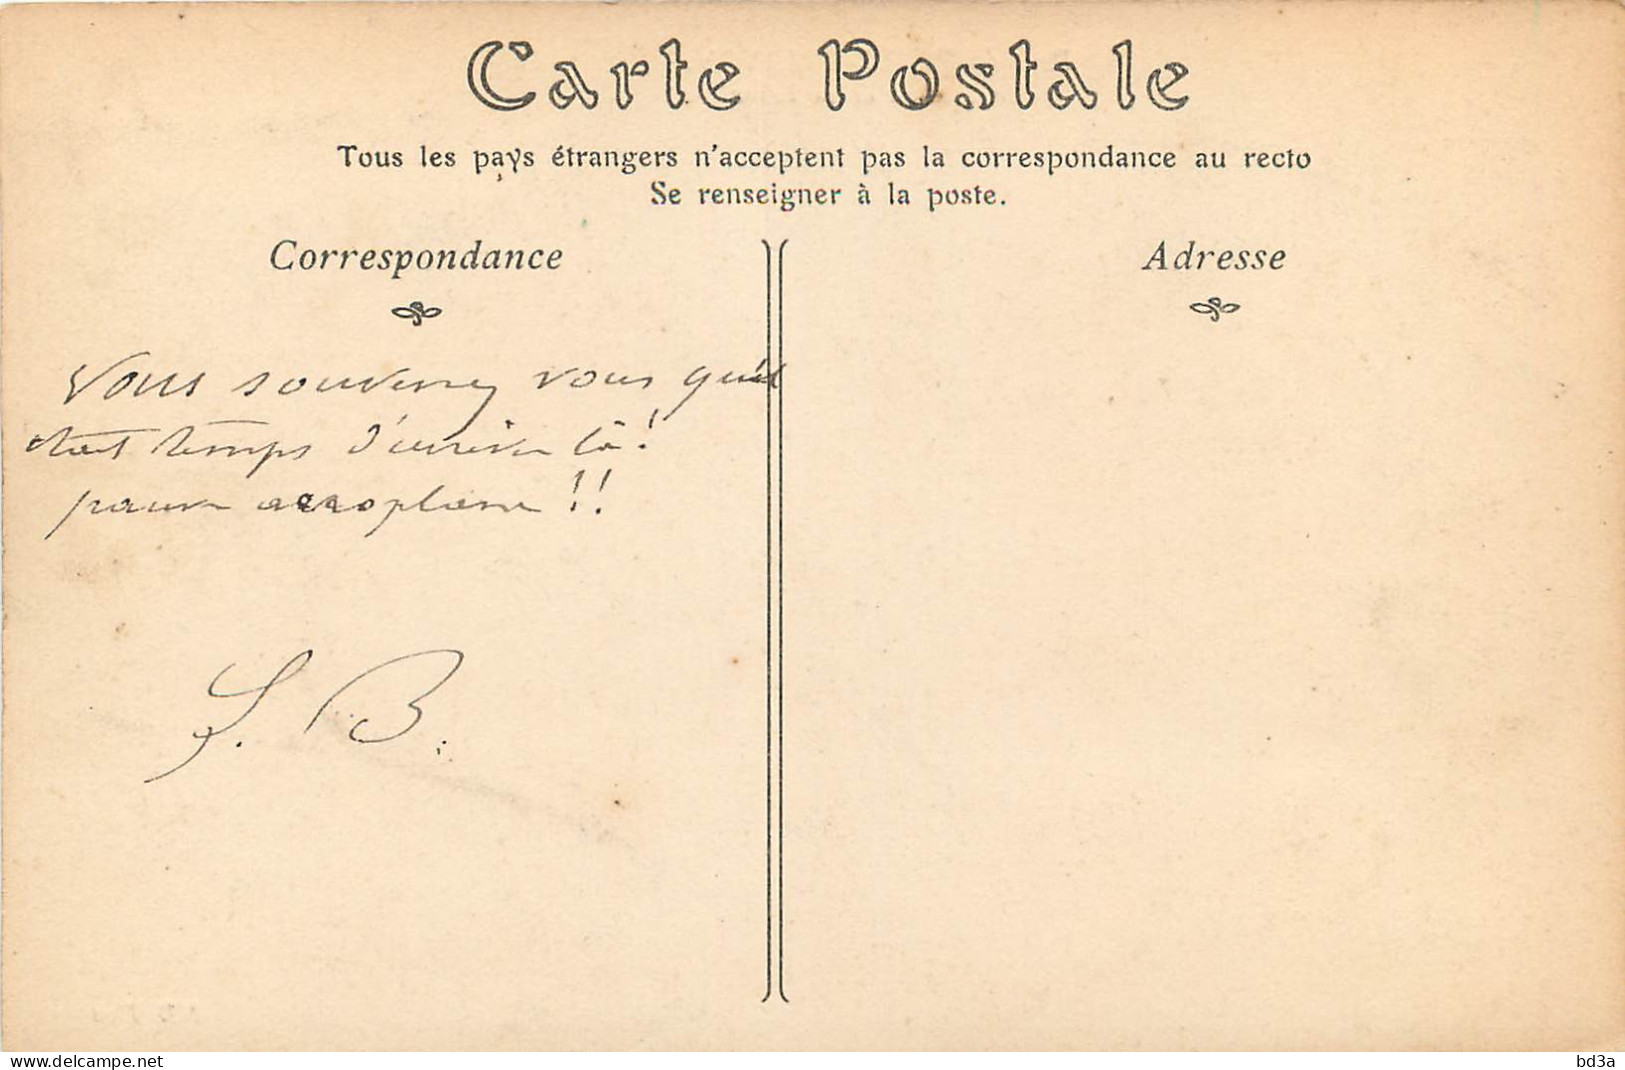 Carte Postale
Tous les pays étrangers n'acceptent pas la correspondance au recto
Se renseigner à la poste.
Correspondance
Adresse
Vous souvenez vous qu'il
était temps d'arriver là!
pauvre aeroplane!!
S. B.
www.delcampe.net
bd3a